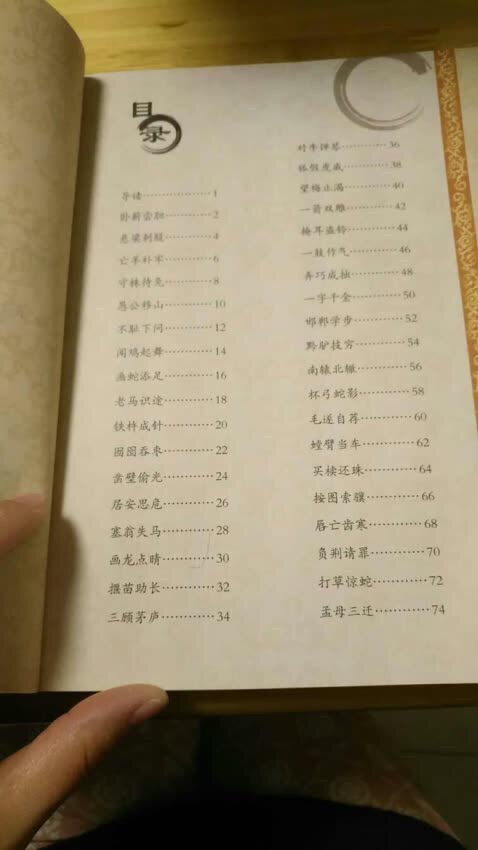 目录
导读……………1
卧薪尝胆…………2
悬梁刺股…………4
亡羊补牢…………6
守株待兔…………8
愚公移山…………10
不耻下问…………12
闻鸡起舞…………14
画蛇添足…………16
老马识途…………18
铁杵成针…………20
囫囵吞枣…………22
凿壁偷光…………24
居安思危…………26
塞翁失马…………28
画龙点睛…………30
揠苗助长…………32
三顾茅庐…………34
对牛弹琴…………36
狐假虎威…………38
望梅止渴…………40
一箭双雕…………42
掩耳盗铃…………44
一鼓作气…………46
弄巧成拙…………48
一字千金…………50
邯郸学步…………52
黔驴技穷…………54
南辕北辙…………56
杯弓蛇影…………58
毛遂自荐…………60
螳臂当车…………62
买椟还珠…………64
按图索骥…………66
唇亡齿寒…………68
负荆请罪…………70
打草惊蛇…………72
孟母三迁…………74